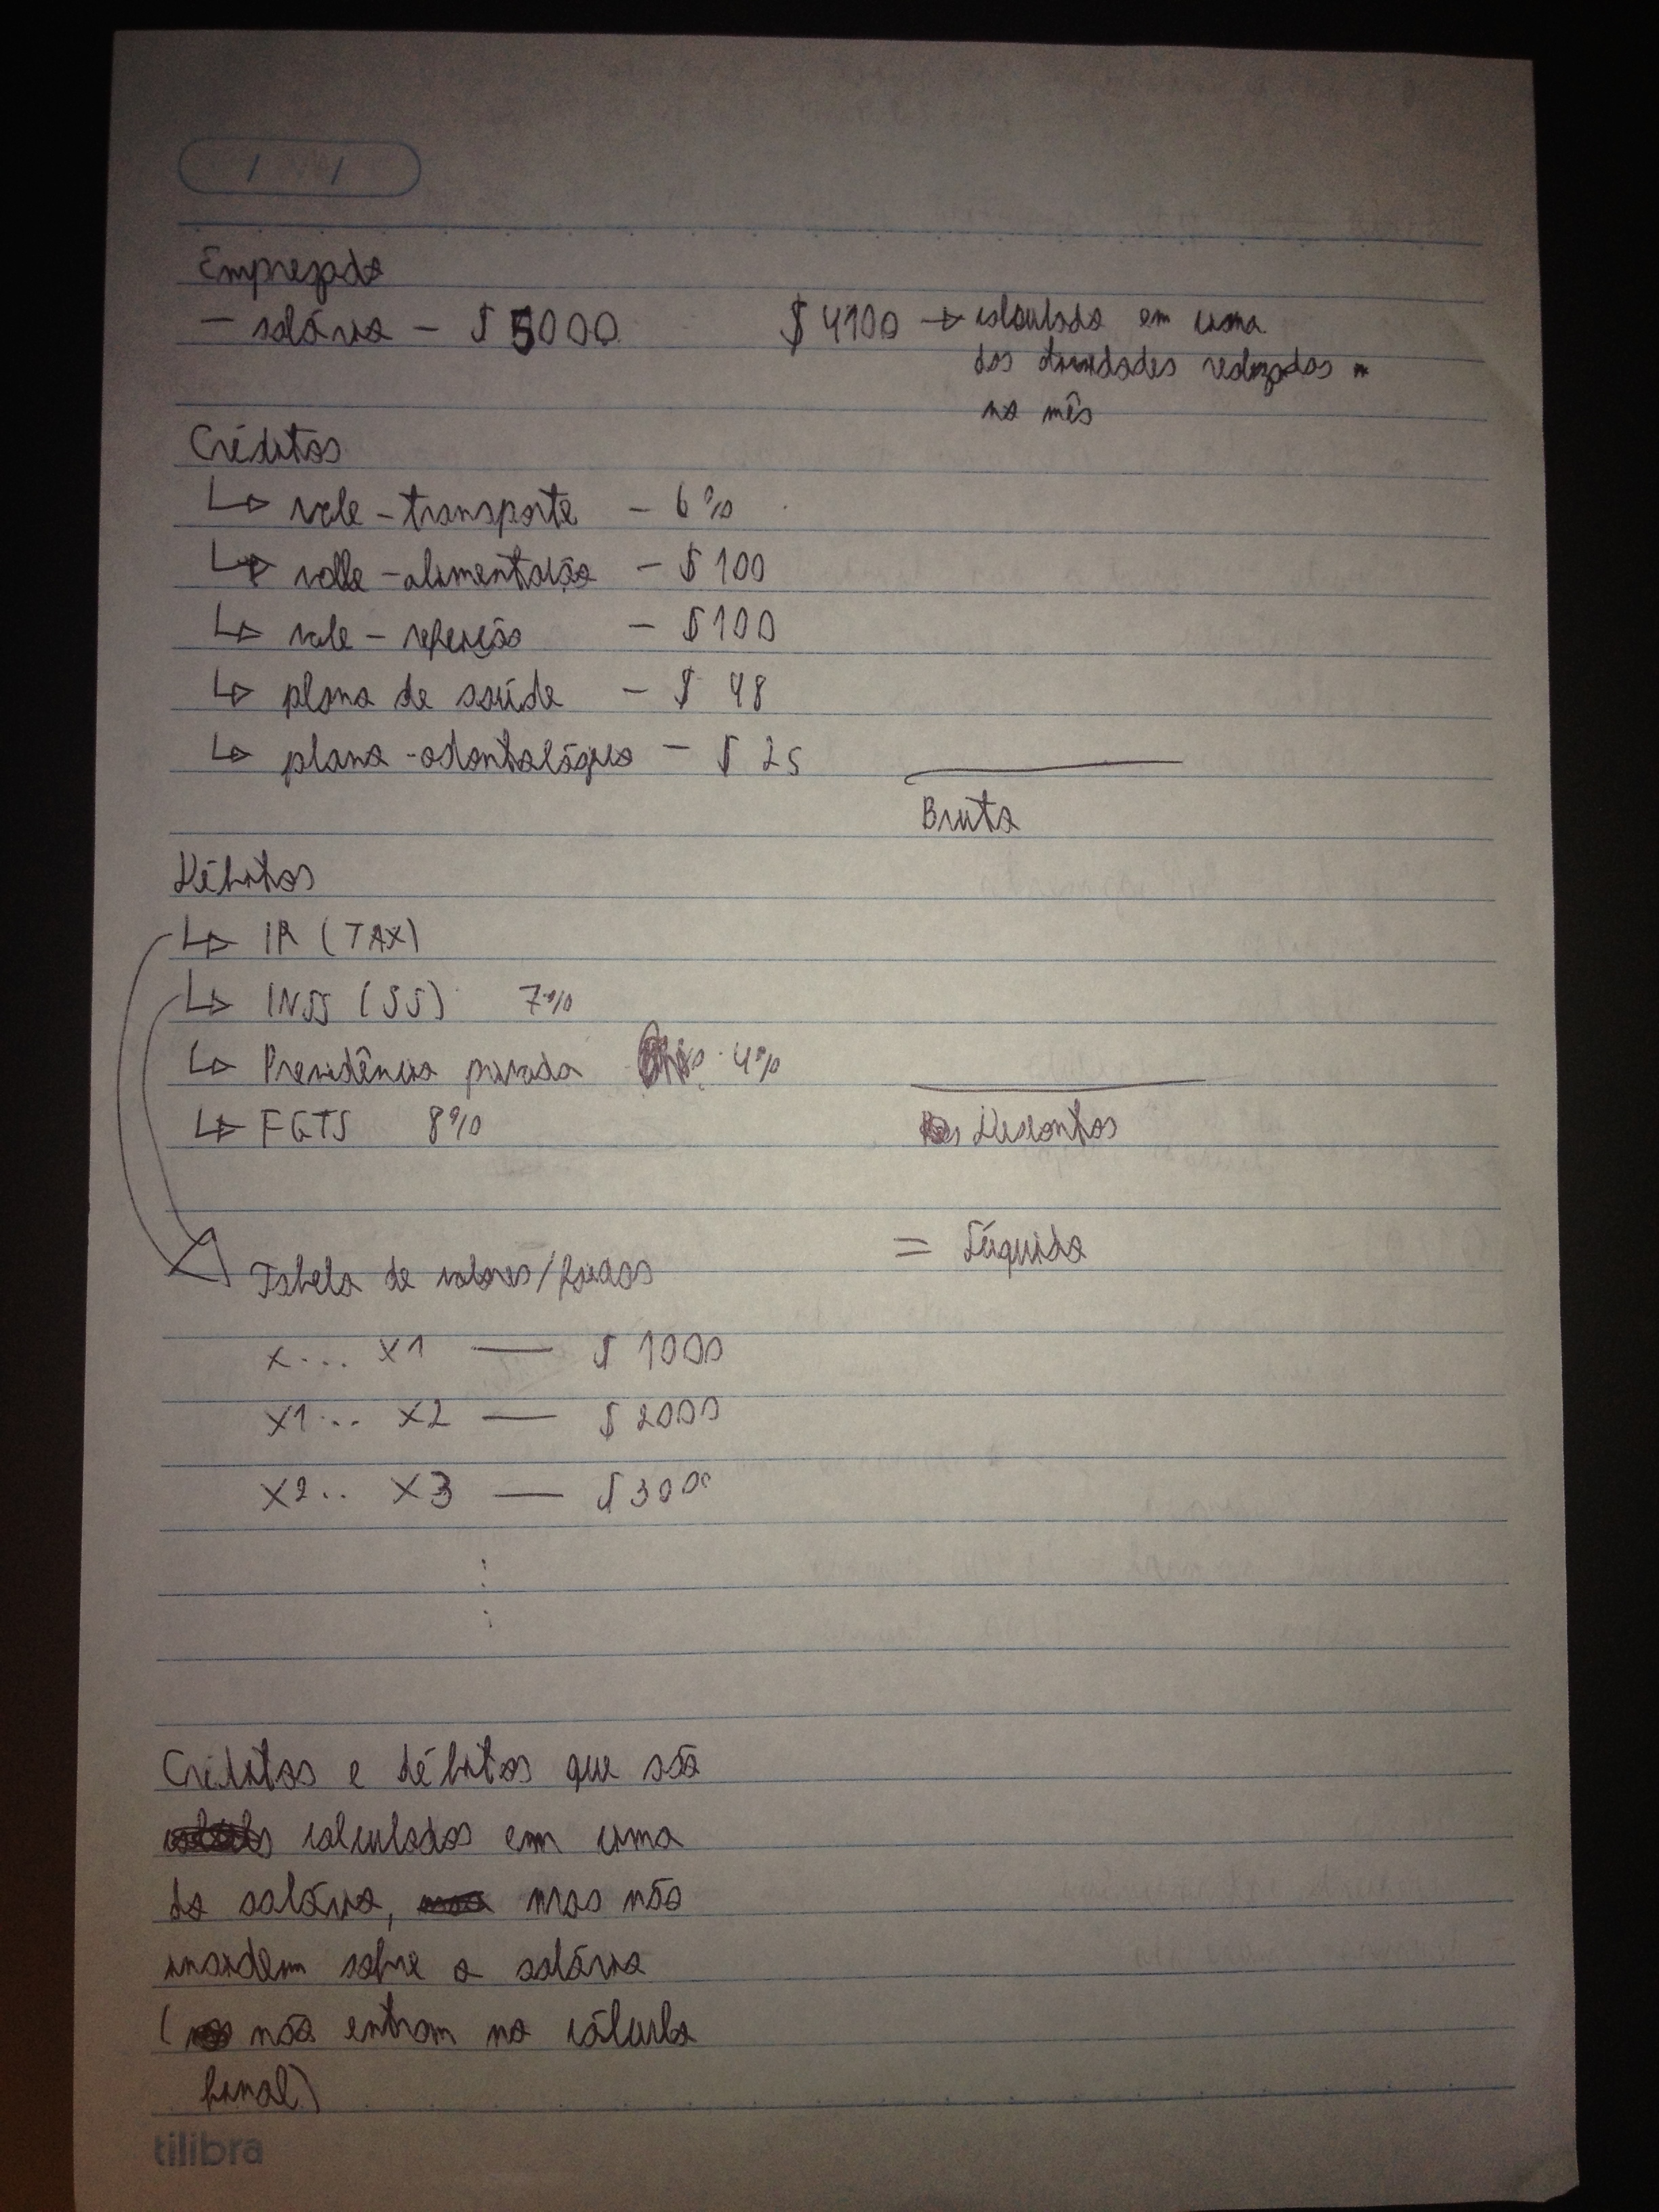 / /
Empregado
- salário - $ 5000   $ 4100 → calculado em cima
das atividades realizadas
no mês
Créditos
↳ vale-transporte - 6%
↳ vale-alimentação - $ 100
↳ vale-refeição - $ 100
↳ plano de saúde - $ 48
↳ plano-odontológico - $ 25
Bruto
Débitos
↳ IR (TAX)
↳ INSS (SS) 7%
↳ Previdência privada 4%
↳ FGTS 8%
Descontos
= Líquido
Tabela de valores/faixas
x... x1 — $ 1000
x1... x2 — $ 2000
x2.. x3 — $ 3000
:
Créditos e débitos que são
calculados em cima
do salário, mas não
incidem sobre o salário
( não entram no cálculo
final)
tilibra